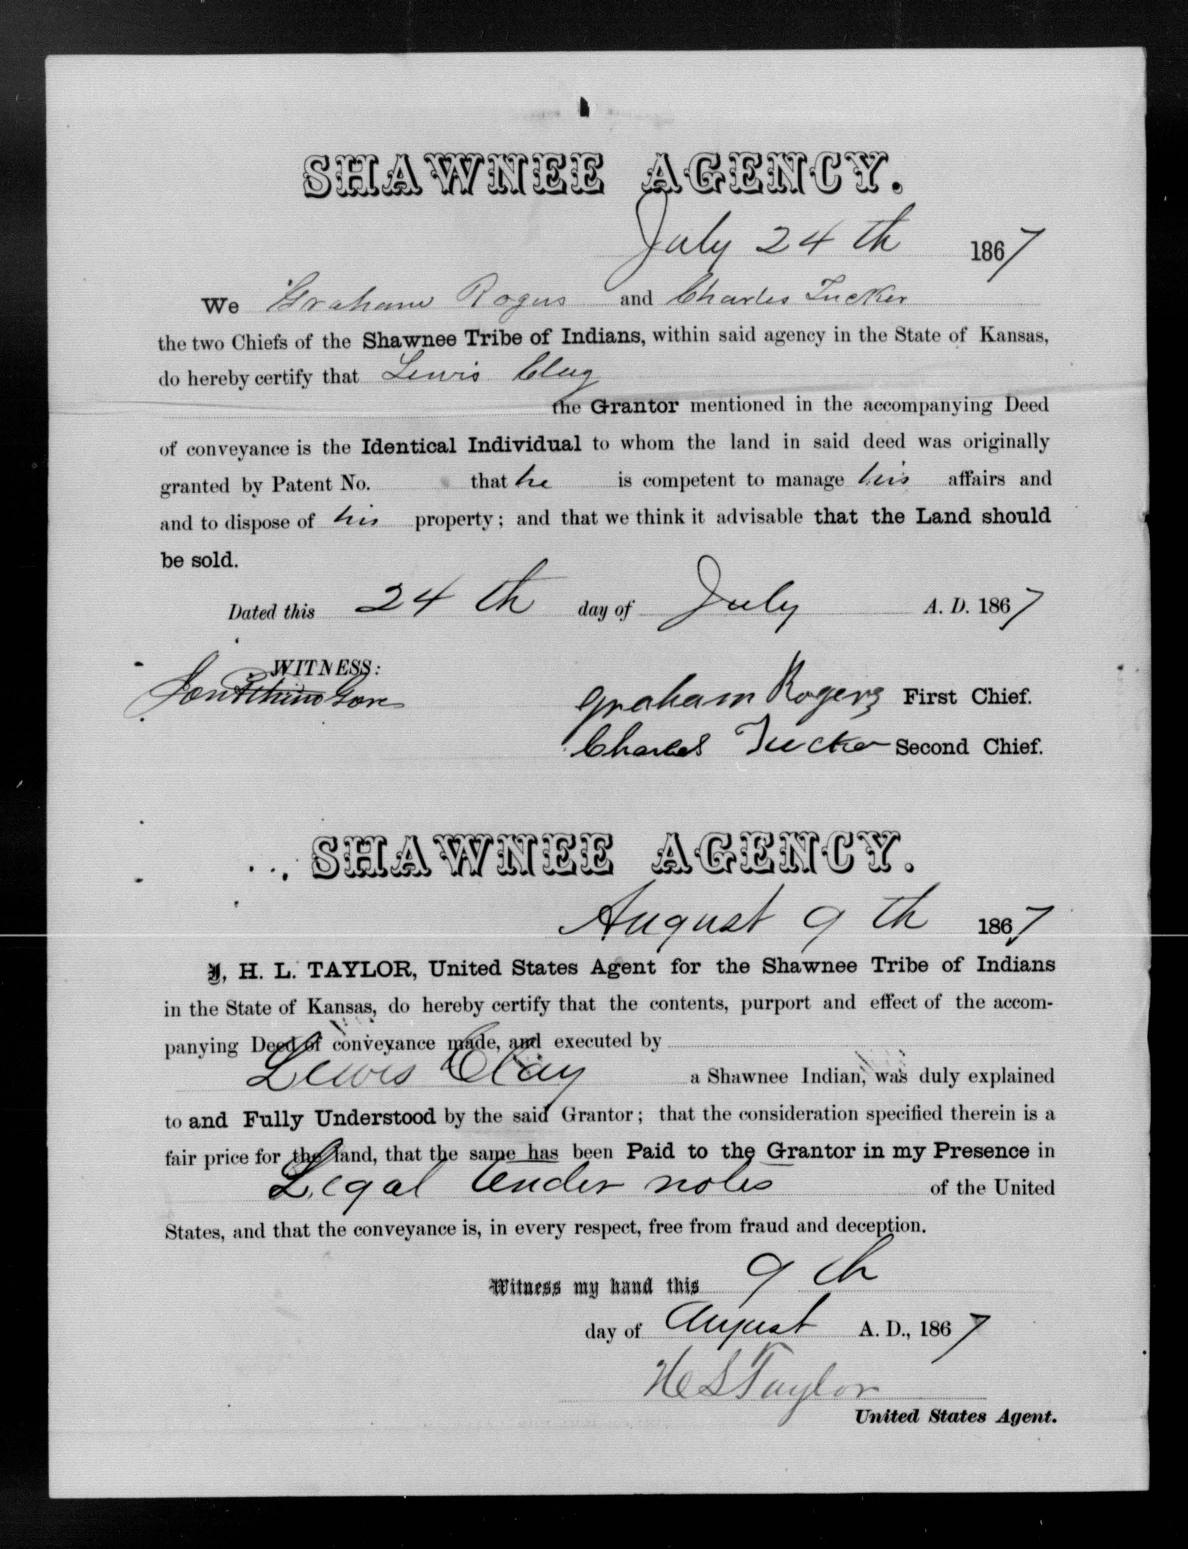 SHAWNEE AGENCY.
July 24th 1867
We Graham Rogers and Charles Tucker
the two Chiefs of the Shawnee Tribe of Indians, within said agency in the State of Kansas,
do hereby certify that Lewis Clay
the Grantor mentioned in the accompanying Deed
of conveyance is the Identical Individual to whom the land in said deed was originally
granted by Patent No. that he is competent to manage his affairs and
and to dispose of his property; and that we think it advisable that the Land should
be sold.
Dated this 24th day of July A. D. 1867
WITNESS:
Graham Rogers First Chief.
Charles Tucker Second Chief.
SHAWNEE AGENCY.
August 9th 1867
I, H. L. TAYLOR, United States Agent for the Shawnee Tribe of Indians
in the State of Kansas, do hereby certify that the contents, purport and effect of the accom-
panying Deed of conveyance made, and executed by
Lewis Clay a Shawnee Indian, was duly explained
to and Fully Understood by the said Grantor; that the consideration specified therein is a
fair price for the land, that the same has been Paid to the Grantor in my Presence in
Legal tender notes of the United
States, and that the conveyance is, in every respect, free from fraud and deception.
Witness my hand this 9th
day of August A. D., 1867
H L Taylor
United States Agent.